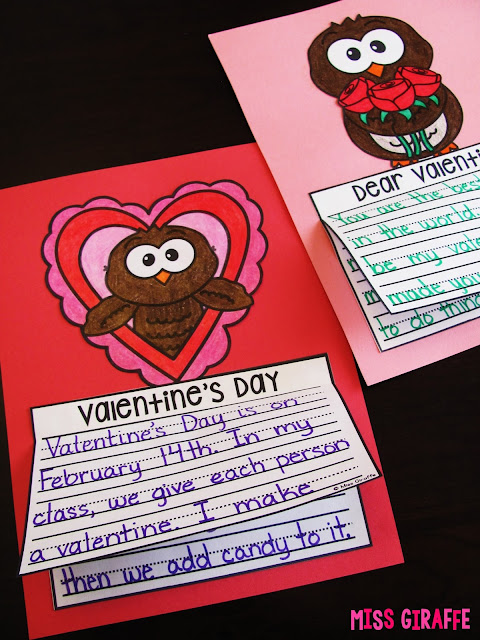 Valentine's Day
Valentine's Day is on
February 14th. In my
class, we give each person
a valentine. I make
© Miss Giraffe
then we add candy to it.
Dear Valenti
You are the best
in the world
be my vale
made you
to do thin
MISS GIRAFFE